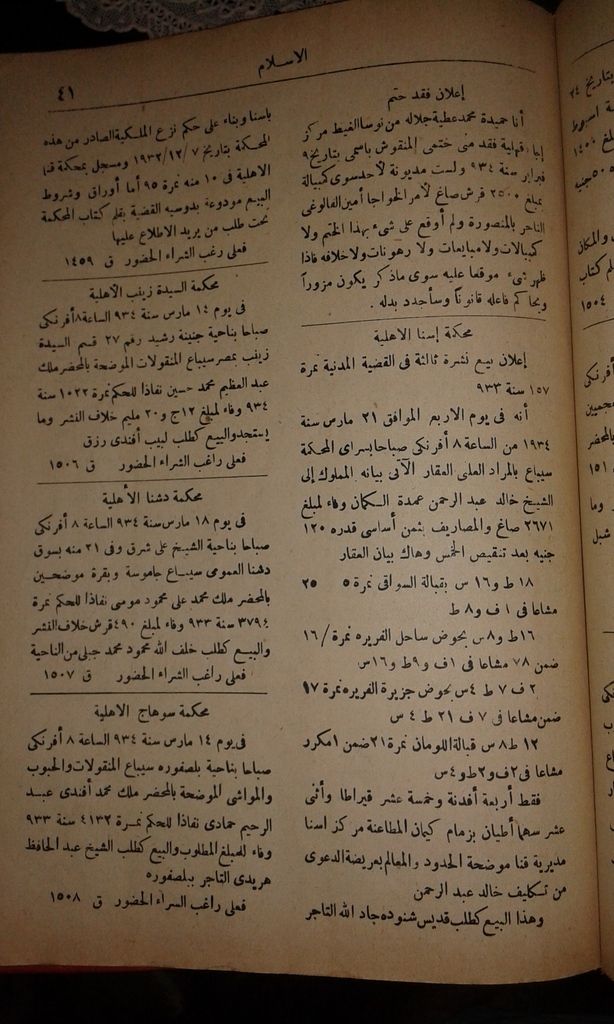 الاسلام
٤١
إعلان فقد ختم
أنا حميدة محمد عطية جلاله من نوسا الغيط مركز
إجا دقهلية فقد منى ختمى المنقوش باسمى بتاريخ ٩
فبراير سنة ٩٣٤ ولست مديونة لأحد سوى كمبيالة
بمبلغ ٢٥٠٠ قرش صاغ لأمر الخواجا أمين الفالوغى
التاجر بالمنصورة ولم أوقع على شىء بهذا الختم ولا
كمبيالات ولا مبايعات ولا رهونات ولا خلافه فاذا
ظهر شىء موقعا عليه سوى ماذكر يكون مزوراً
ويحاكم فاعله قانوناً وسأجدد بدله .
محكمة إسنا الاهلية
إعلان بيع نشرة ثالثة فى القضية المدنية نمرة
١٥٧ سنة ٩٣٣
أنه فى يوم الاربع الموافق ٢١ مارس سنة
١٩٣٤ من الساعة ٨ أفرنكى صباحا بسراى المحكمة
سيباع بالمزاد العلنى العقار الآتى بيانه المملوك إلى
الشيخ خالد عبد الرحمن عمدة الكيمان وفاء لمبلغ
٢٦٧١ صاغ والمصاريف بثمن أساسى قدره ١٢٠
جنيه بعد تنقيص الخمس وهاك بيان العقار
١٨ ط و ١٦ س بقبالة السواقى نمرة ٥ ٢٥
مشاعا فى ١ ف و ٨ ط
١٦ ط و ٨ س بحوض ساحل الفريره نمرة / ١٦
ضمن ٧٨ مشاعا فى ١ ف و ٩ ط و ١٦ س
٢ ف ٧ ط ٤ س بحوض جزيرة الفريره نمرة ١٧
ضمن مشاعا فى ٧ ف ٢١ ط ٤ س
١٢ ط ٨ س قبالة اللومان نمرة ٢١ ضمن ١ مكرر
مشاعا فى ٢ ف و ٢ ط و ٤ س
فقط أربعة أفدنة وخمسة عشر قيراطا وأثنى
عشر سهما أطيان بزمام كيمان المطاعنة مركز اسنا
مديرية قنا موضحة الحدود والمعالم بعريضة الدعوى
من تكليف خالد عبد الرحمن
وهذا البيع كطلب قديس شنوده جاد الله التاجر
باسنا وبناء على حكم نزع الملكية الصادر من هذه
المحكمة بتاريخ ٧ /١٢/ ١٩٣٢ ومسجل بمحكمة قنا
الاهلية فى ١٠ منه نمرة ٩٥ أما أوراق وشروط
البيع مودوعة بدوسيه القضية بقلم كتاب المحكمة
تحت طلب من يريد الاطلاع عليها
فعلى رغب الشراء الحضور ق ١٤٥٩
محكمة السيدة زينب الأهلية
فى يوم ١٤ مارس سنة ٩٣٤ الساعة ٨ أفرنكى
صباحا بناحية جنينة رشيد رقم ٢٧ قسم السيدة
زينب بمصر سيباع المنقولات الموضحة بالمحضر ملك
عبد العظيم محمد حسين نفاذا للحكم نمرة ١٠٢٢ سنة
٩٣٤ وفاء لمبلغ ١٢ ج و ٢٠ مليم خلاف النشر وما
يستجد والبيع كطلب لبيب أفندى رزق
فعلى راغب الشراء الحضور ق ١٥٠٦
محكمة دشنا الأهلية
فى يوم ١٨ مارس سنة ٩٣٤ الساعة ٨ أفرنكى
صباحا بناحية الشيخ على شرق وفى ٢١ منه بسوق
دشنا العمومى سيباع جاموسة وبقرة موضحين
بالمحضر ملك محمد على محمود موسى نفاذا للحكم نمرة
٣٧٩٤ سنة ٩٣٣ وفاء لمبلغ ٤٩٠ قرش خلاف النشر
والبيع كطلب خلف الله محمود محمد جبلى من الناحية
فعلى راغب الشراء الحضور ق ١٥٠٧
محكمة سوهاج الاهلية
فى يوم ١٤ مارس سنة ٩٣٤ الساعة ٨ أفرنكى
صباحا بناحية بلصفوره سيباع المنقولات والحبوب
والمواشى الموضحة بالمحضر ملك محمد أفندى عبد
الرحيم حمادى نفاذا للحكم نمرة ٤١٣٢ سنة ٩٣٣
وفاء للمبلغ المطلوب والبيع كطلب الشيخ عبد الحافظ
هريدى التاجر ببلصفوره
فعلى راغب الشراء الحضور ق ١٥٠٨